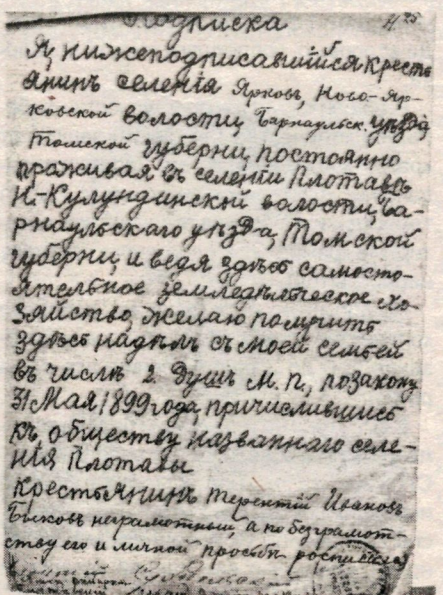 Подписка
Я, нижеподписавшійся кресть
янинъ селенія Ярковъ, Ново-Яр-
ковской волости, Барнаульск. уѣзда
Томской губерни, постоянно
праживая въ селении Плотавъ
Н-Кулундинский волости, Ба-
рнаульскаго уѣзд-а, Томской
губерни, и ведя здѣсь самосто-
ятельное земледѣлческое хо-
зяйство, желаю получить
здѣсь надѣлъ съ моей семьей
въ числѣ 2 душъ м. п., по закону
31 Мая 1899 года, причислившись
къ, обществу названнаго селе-
нія Плотавы
Крестьянинъ Терентій Ивановъ
Быковъ неграмотный, а по безграмот-
ству его и личной прозьбѣ